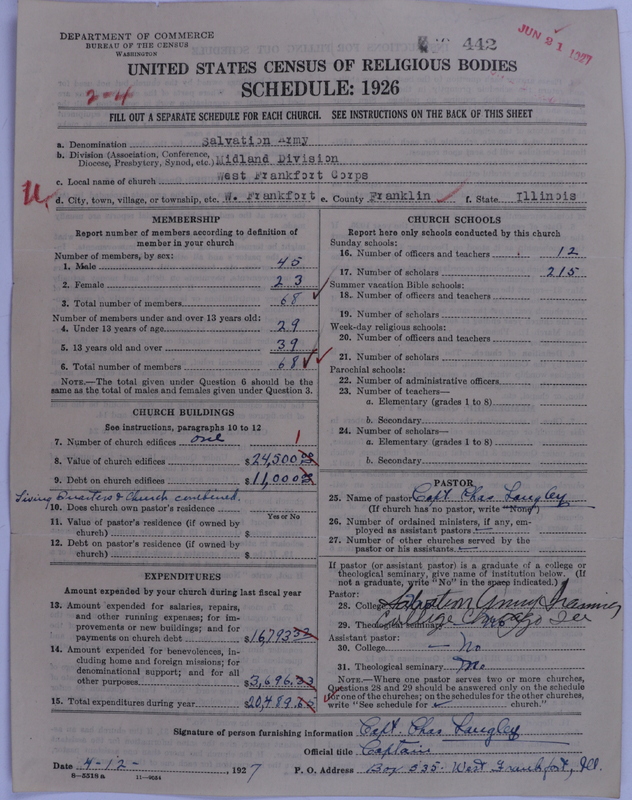 DEPARTMENT OF COMMERCE
BUREAU OF THE CENSUS
WASHINGTON
442
JUN 21 1927
UNITED STATES CENSUS OF RELIGIOUS BODIES
2-4
SCHEDULE: 1926
FILL OUT A SEPARATE SCHEDULE FOR EACH CHURCH. SEE INSTRUCTIONS ON THE BACK OF THIS SHEET
a. Denomination Salvation Army
b. Division (Association, Conference, Diocese, Presbytery, Synod, etc.) Midland Division
c. Local name of church West Frankfort Corps
d. City, town, village, or township, etc. W. Frankfort e. County Franklin f. State Illinois
MEMBERSHIP
Report number of members according to definition of
member in your church
Number of members, by sex:
1. Male 45
2. Female 23
3. Total number of members 68
Number of members under and over 13 years old:
4. Under 13 years of age 29
5. 13 years old and over 39
6. Total number of members 68
NOTE.—The total given under Question 6 should be the
same as the total of males and females given under Question 3.
CHURCH BUILDINGS
See instructions, paragraphs 10 to 12
7. Number of church edifices one 1
8. Value of church edifices $24,500
9. Debt on church edifices $11,000
Living Quarters & Church combined.
10. Does church own pastor's residence
Yes or No
11. Value of pastor's residence (if owned by
church) $
12. Debt on pastor's residence (if owned by
church) $
EXPENDITURES
Amount expended by your church during last fiscal year
13. Amount expended for salaries, repairs,
and other running expenses; for im-
provements or new buildings; and for
payments on church debt $16793
14. Amount expended for benevolences, in-
cluding home and foreign missions; for
denominational support; and for all
other purposes $3,696.
15. Total expenditures during year $20,489.
CHURCH SCHOOLS
Report here only schools conducted by this church
Sunday schools:
16. Number of officers and teachers 12
17. Number of scholars 215
Summer vacation Bible schools:
18. Number of officers and teachers
19. Number of scholars
Week-day religious schools:
20. Number of officers and teachers
21. Number of scholars
Parochial schools:
22. Number of administrative officers
23. Number of teachers—
a. Elementary (grades 1 to 8)
b. Secondary
24. Number of scholars—
a. Elementary (grades 1 to 8)
b. Secondary
PASTOR
25. Name of pastor Capt Chas Langley
(If church has no pastor, write "None")
26. Number of ordained ministers, if any, em-
ployed as assistant pastors
27. Number of other churches served by the
pastor or his assistants
If pastor (or assistant pastor) is a graduate of a college or
theological seminary, give name of institution below. (If
not a graduate, write "No" in the space indicated.)
Pastor:
28. College Salvation Army Training
29. Theological seminary College Chicago Ill
Assistant pastor:
30. College No
31. Theological seminary No
NOTE.—Where one pastor serves two or more churches,
Questions 28 and 29 should be answered only on the schedule
for one of the churches; on the schedules for the other churches,
write "See schedule for church."
Signature of person furnishing information Capt. Chas Langley
Official title Captain
Date 4-12- , 1927 P. O. Address Box 535. West Frankfort, Ill.
8-5318a 11-9054